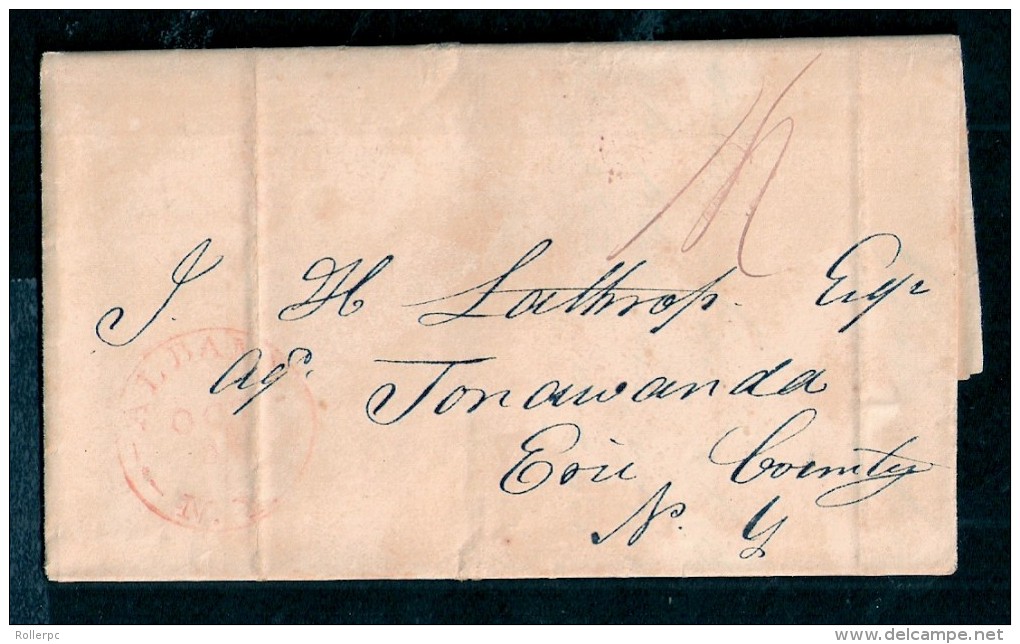 J. H. Lathrop. Esqr
agt. Tonawanda
Erie County
N. Y
ALBANY
OCT
N.Y.
Rollerpc
www.delcampe.net